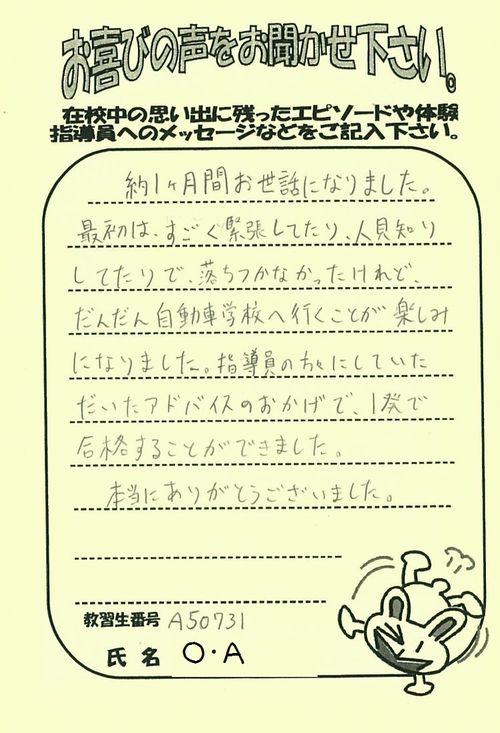 お喜びの声をお聞かせ下さい。
在校中の思い出に残ったエピソードや体験
指導員へのメッセージなどをご記入下さい。
約1ヶ月間お世話になりました。
最初は、すごく緊張してたり、人見知り
してたりで、落ちつかなかったけれど、
だんだん自動車学校へ行くことが楽しみ
になりました。指導員の方々にしていた
だいたアドバイスのおかげで、1発で
合格することができました。
本当にありがとうございました。
教習生番号 A50731
氏名 O・A